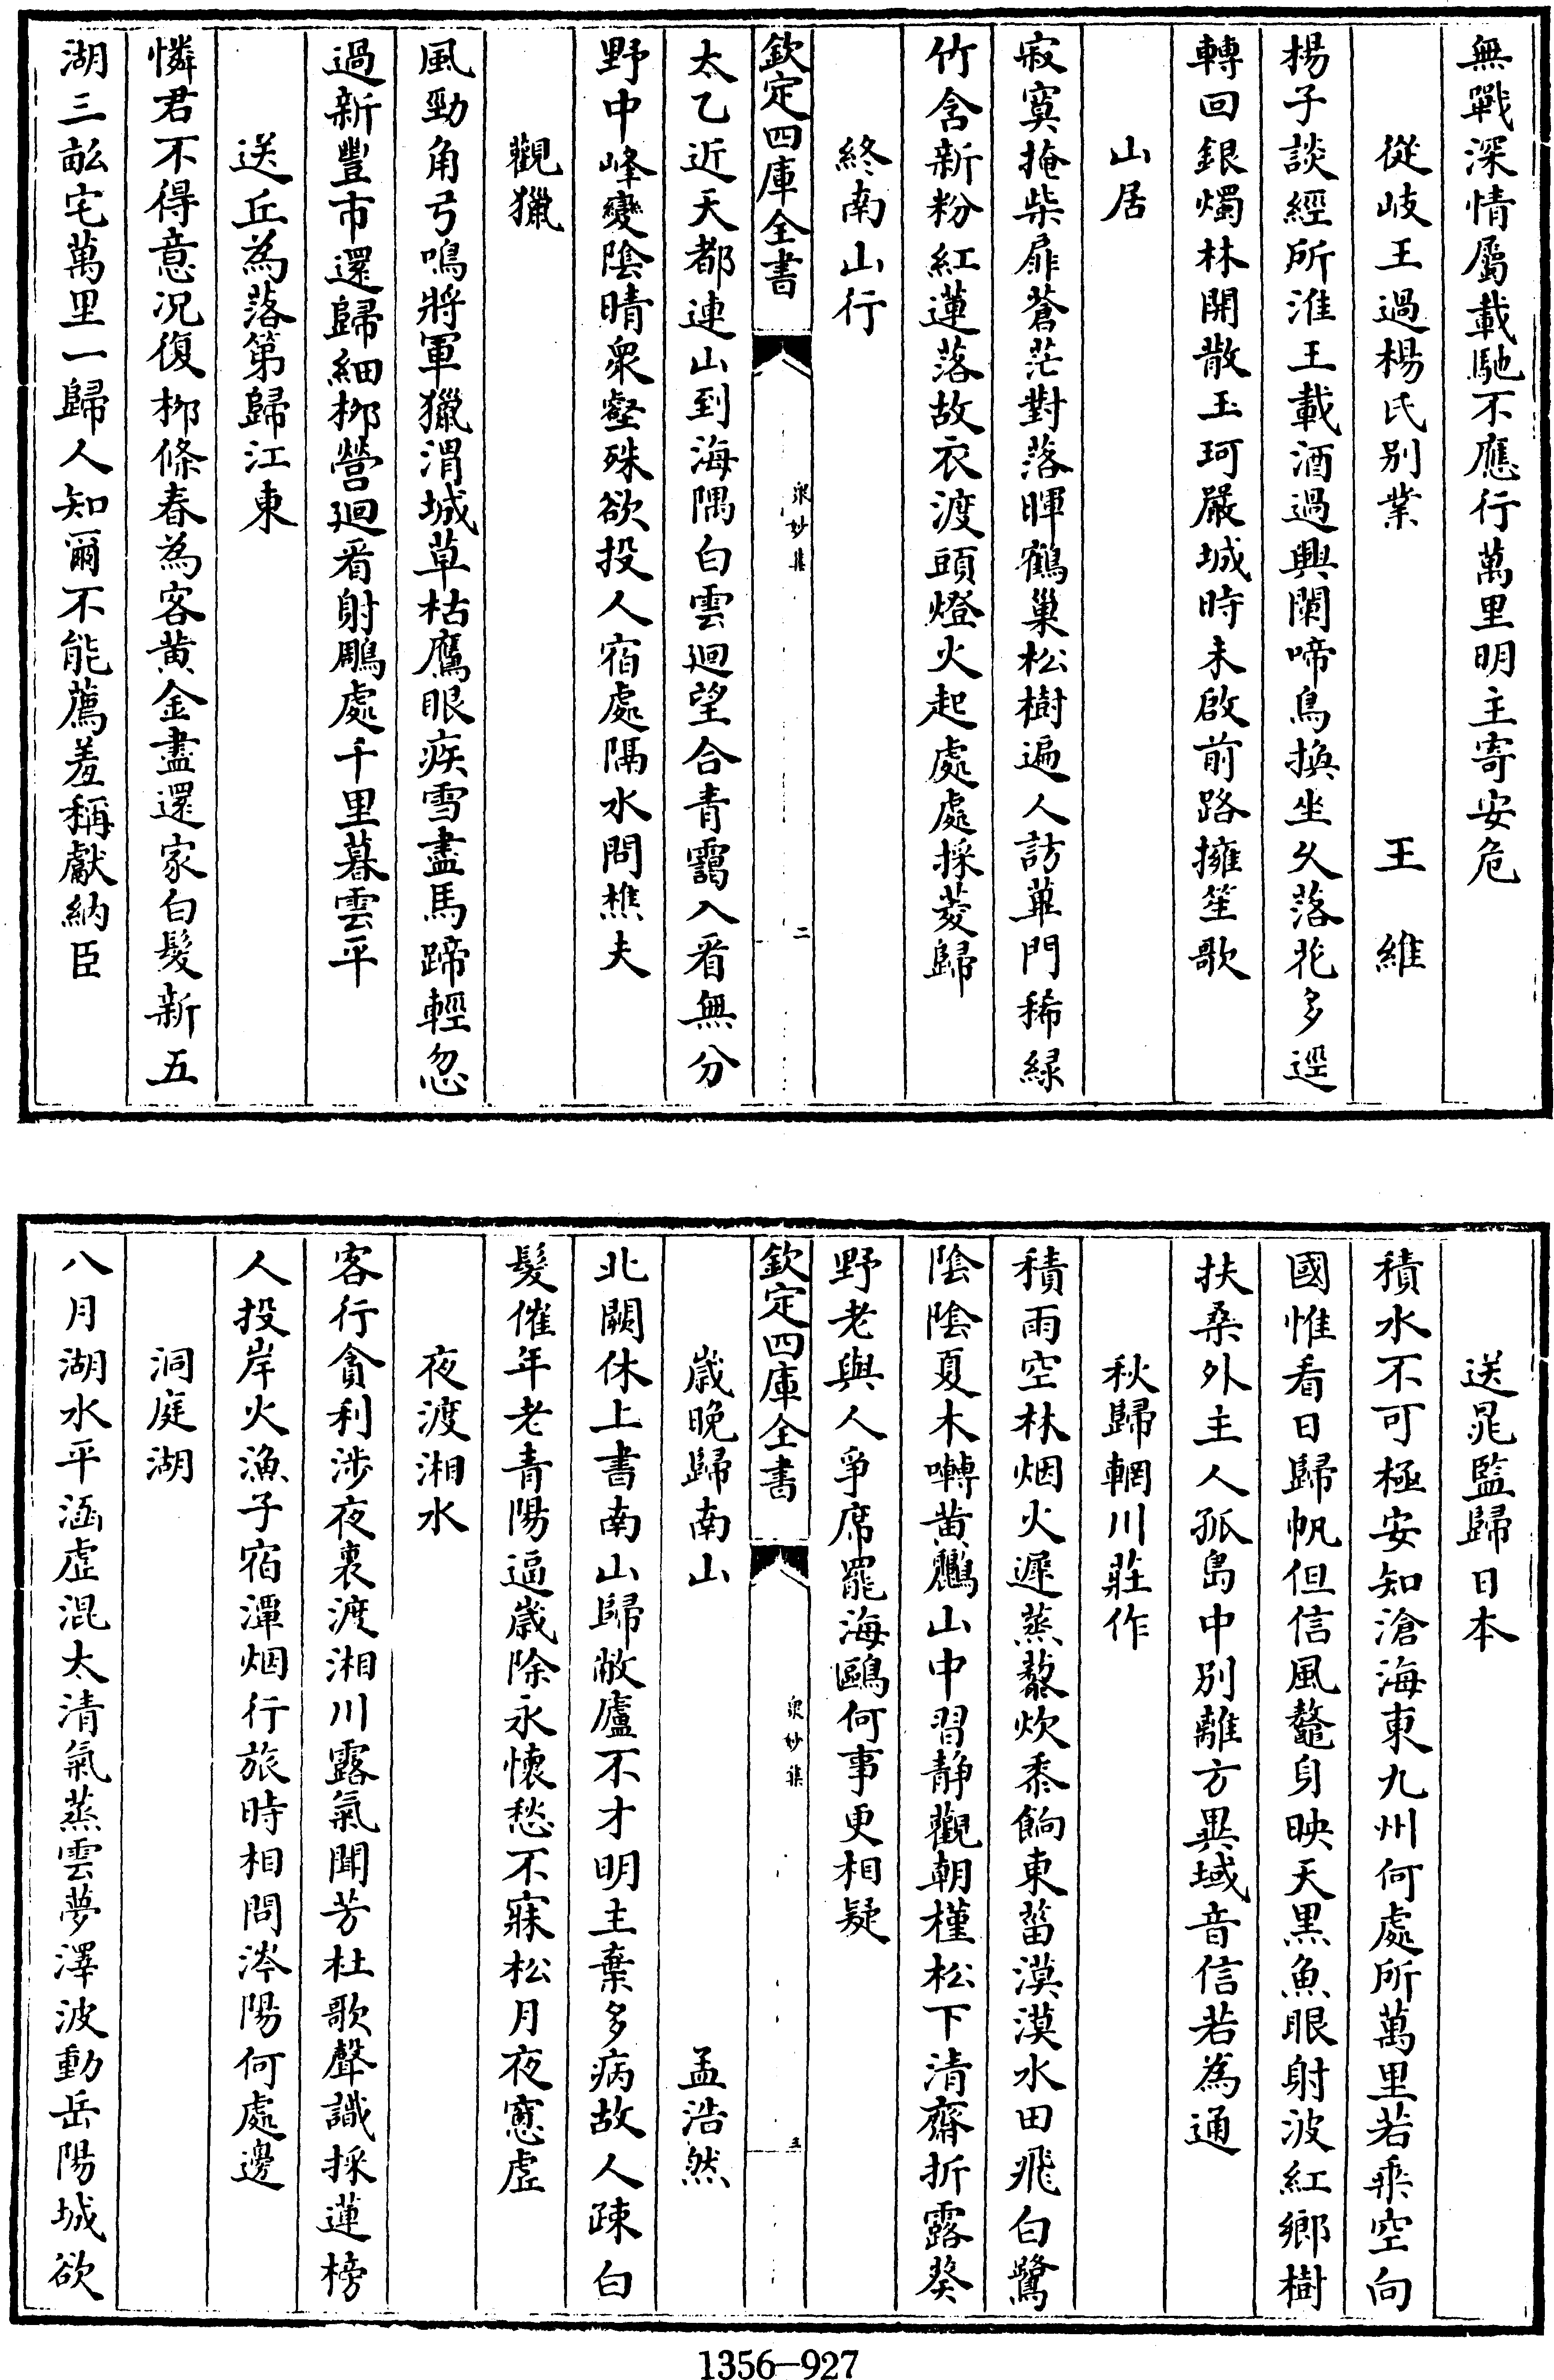 無戰深情屬載馳不應行萬里明主寄安危
從岐王過楊氏别業 王維
楊子談經所淮王載酒過興闌啼鳥換坐久落花多逕
轉回銀燭林開散玉珂嚴城時未啟前路擁笙歌
山居
寂寞掩柴扉蒼茫對落暉鶴巢松樹遍人訪蓽門稀緑
竹含新粉紅蓮落故衣渡頭燈火起處處採菱歸
終南山行
欽定四庫全書 衆妙集 二
太乙近天都連山到海隅白雲迴望合青靄入看無分
野中峰變陰晴衆壑殊欲投人宿處隔水問樵夫
觀獵
風勁角弓鳴將軍獵渭城草枯鷹眼疾雪盡馬蹄輕忽
過新豐市還歸細栁營迴看射鵰處千里暮雲平
送丘為落第歸江東
憐君不得意况復栁條春為客黄金盡還家白髪新五
湖三畝宅萬里一歸人知爾不能薦羞稱獻納臣
送晁監歸日本
積水不可極安知滄海東九州何處所萬里若乘空向
國惟看日歸帆但信風鼇身映天黒魚眼射波紅鄉樹
扶桑外主人孤島中别離方異域音信若為通
秋歸輞川莊作
積雨空林烟火遲蒸藜炊黍餉東菑漠漠水田飛白鷺
陰陰夏木囀黄鸝山中習静觀朝槿松下清齋折露葵
野老與人爭席罷海鷗何事更相疑
欽定四庫全書 衆妙集 三
歳晚歸南山 孟浩然
北闕休上書南山歸敝廬不才明主棄多病故人疎白
髪催年老青陽逼歳除永懷愁不寐松月夜窻虚
夜渡湘水
客行貪利涉夜裏渡湘川露氣聞芳杜歌聲識採蓮榜
人投岸火漁子宿潭烟行旅時相問涔陽何處邊
洞庭湖
八月湖水平涵虚混太清氣蒸雲夢澤波動岳陽城欲
1356-927